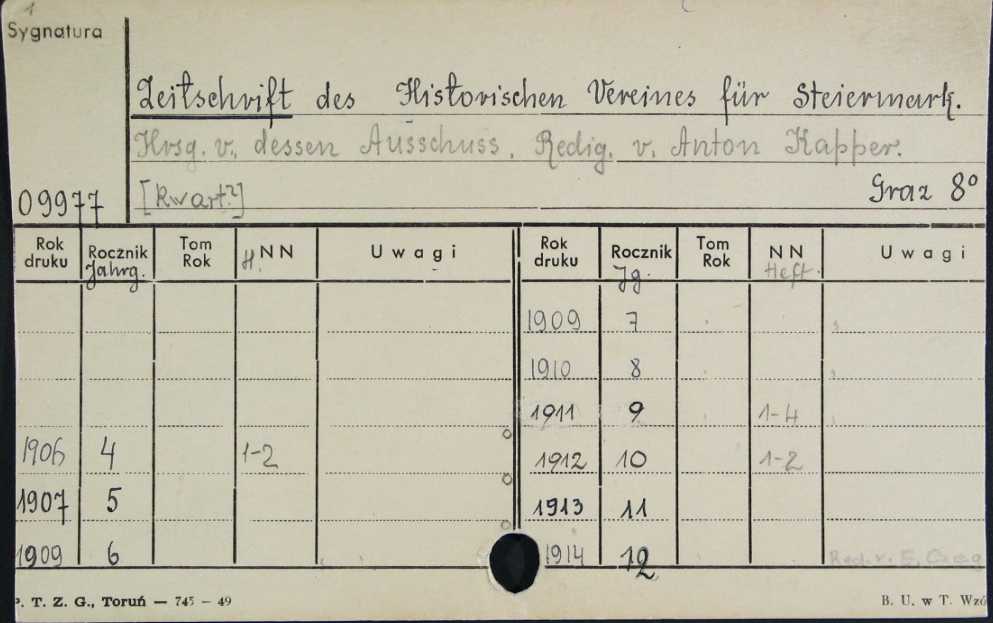 1
Sygnatura
Zeitschrift des Historischen Vereines für Steiermark.
Hrsg. v. dessen Ausschuss. Redig. v. Anton Kapper.
[Kwart?]
09977
Graz 8°
Rok druku Rocznik Jahrg. Tom Rok H. NN Uwagi Rok druku Rocznik Jg. Tom Rok NN Heft. Uwagi
1909 7
1910 8
1911 9 1-4
1906 4 1-2 1912 10 1-2
1907 5 1913 11
1909 6 1914 12 Red. v. E.
P. T. Z. G., Toruń — 745 — 49
B. U. w T. Wzó